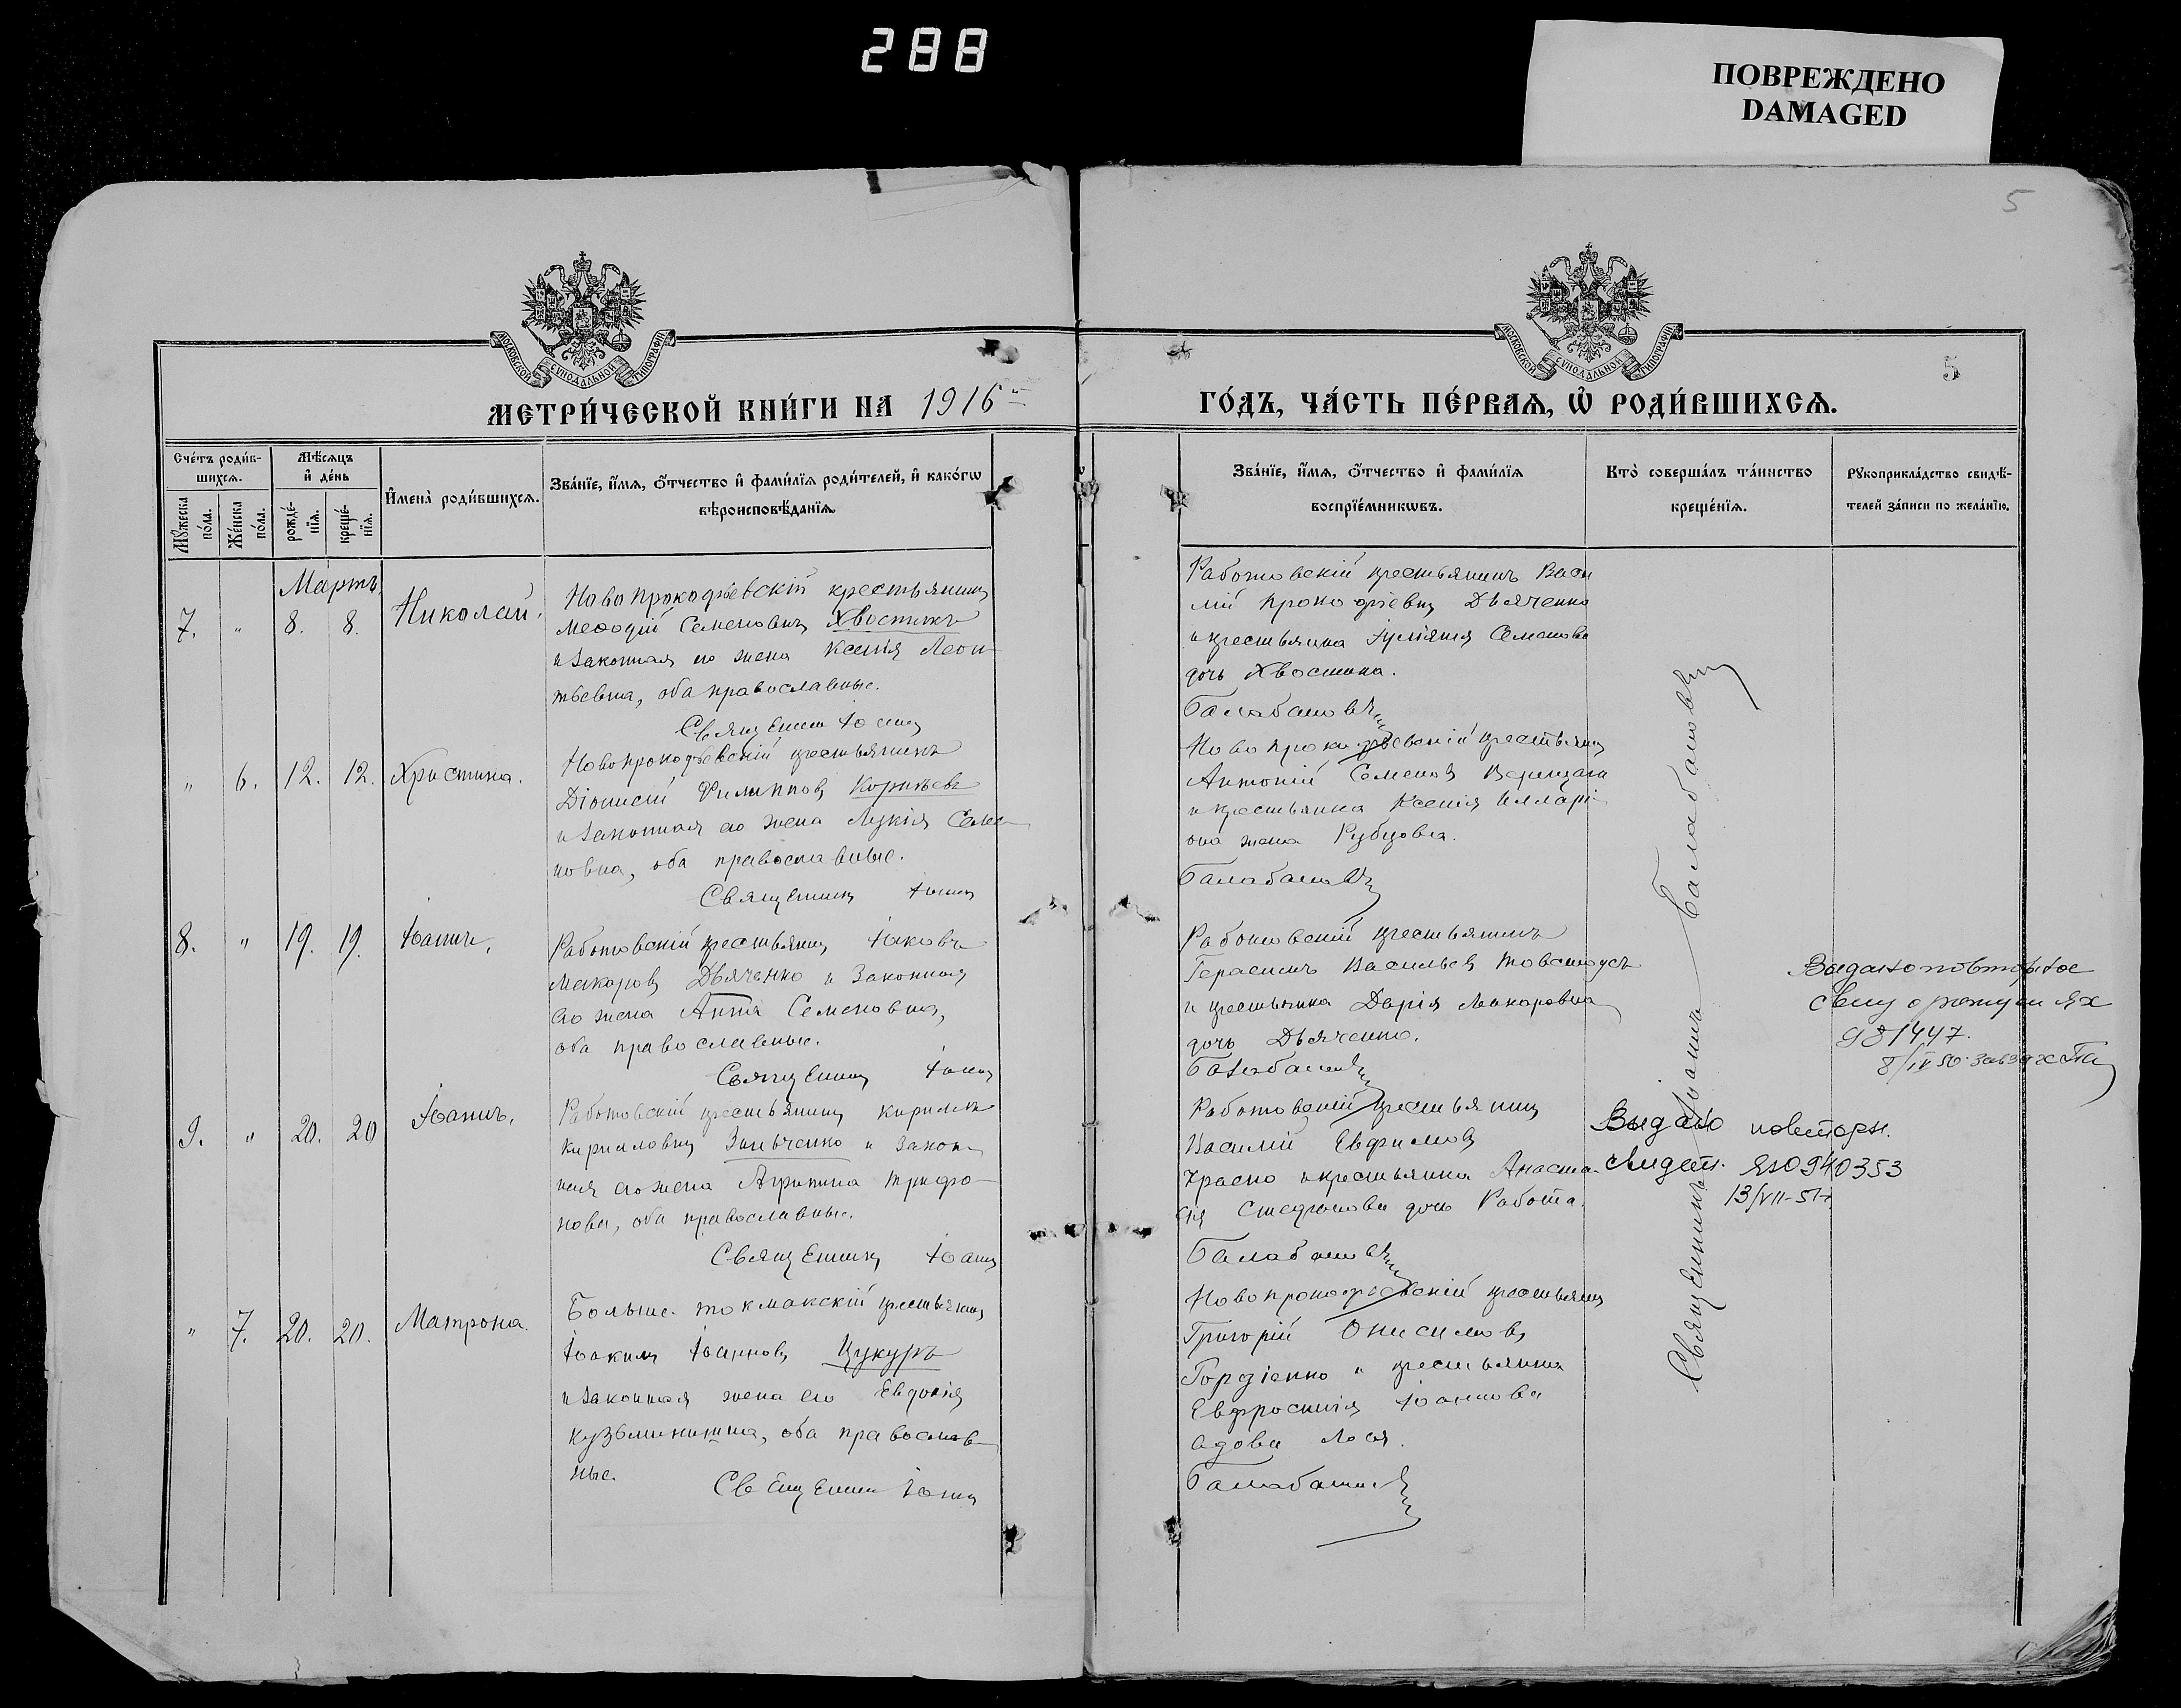 288
ПОВРЕЖДЕНО
DAMAGED
5
МОСКОВСКОЙ СУНОДАЛЬНОЙ ТИПОГРАФІИ
МОСКОВСКОЙ СУНОДАЛЬНОЙ ТИПОГРАФІИ
5
МЕТРИ́ЧЕСКОЙ КНИ́ГИ НА 1916
ГО́ДЪ, ЧА́СТЬ ПЕ́РВАѦ, Ѡ҆ РОДИ́ВШИХСѦ.
Сче́тъ роди́в-
шихсѧ.
Мꙋ́жеска
по́ла.
Же́нска
по́ла.
Мѣ́сѧцъ
и҆ де́нь
рожде́-
нїѧ.
креще́-
нїѧ.
И҆мена̀ роди́вшихсѧ.
Зва́нїе, и҆́мѧ, ѻ҆́тчество и҆ фами́лїѧ роди́телей, и҆ како́гѡ
вѣроисповѣ́данїѧ.
Зва́нїе, и҆́мѧ, ѻ҆́тчество и҆ фами́лїѧ
воспрїе́мникѡвъ.
Кто̀ соверша́лъ та́инство
креще́нїѧ.
Рꙋкоприкла́дство свидѣ́-
телей за́писи по жела́нїю.
Мартъ
7. " 8. 8. Николай.
Новопрокофьевскій крестьянинъ
Меѳодій Семеновичъ Хвостикъ
и законная его жена Ксенія Леон-
тьевна, оба православные.
Священник Іоаннъ
Работовскій крестьянинъ Васи
лій Прокофіевичъ Дьяченко
и крестьянка Семенова
дочь Хвостика.
Балабановъ
" 6. 12. 12. Христина.
Новопрокофьевскій крестьянинъ
Діонисій Филиппов Корнѣевъ
и законная его жена Лукія Семе
новна, оба православные.
Священникъ Іоаннъ
Новопрокофьевскій крестьянинъ
Антоній Семенов
и крестьянка Ксенія Илларі
она жена Рубцова.
Балабановъ
8. " 19. 19. Іоаннъ.
Работовскій крестьянинъ Іаковъ
Макаров Дьяченко и законная
его жена Анна Семеновна,
оба православные.
Священникъ Іоаннъ
Работовскій крестьянинъ
Герасимъ Васильев Товстоусъ
и крестьянка Дарія Макаровна
дочь Дьяченко.
Балабановъ
Выдано повторное
свид о рождении ЯХ
981447.
8/IV 50
9. " 20. 20 Іоаннъ.
Работовскій крестьянинъ Кириллъ
Кирилловичъ Зинченко и закон-
ная его жена Агрипина Трифо-
нова, оба православные.
Священникъ Іоаннъ
Работовскій крестьянинъ
Василій Евфимов
Красно и крестьянка Анаста-
сія дочь Работа.
Балабановъ
Выдано повторн.
свидет. ЯЮ 940353
13/VII-51г
" 7. 20. 20. Матрона.
Больше-токмакскій крестьянинъ
Іоакимъ Іоаннов Цукуръ
и законная жена его Евдокія
Кузьминична, оба православ
ные.
Священник Іоаннъ
Новопрокофьевскій крестьянинъ
Григорій Онисимов
Гордіенко и крестьянка
Евфросинія Іоаннова
вдова Лося.
Балабановъ
Священникъ Іоаннъ Балабановъ